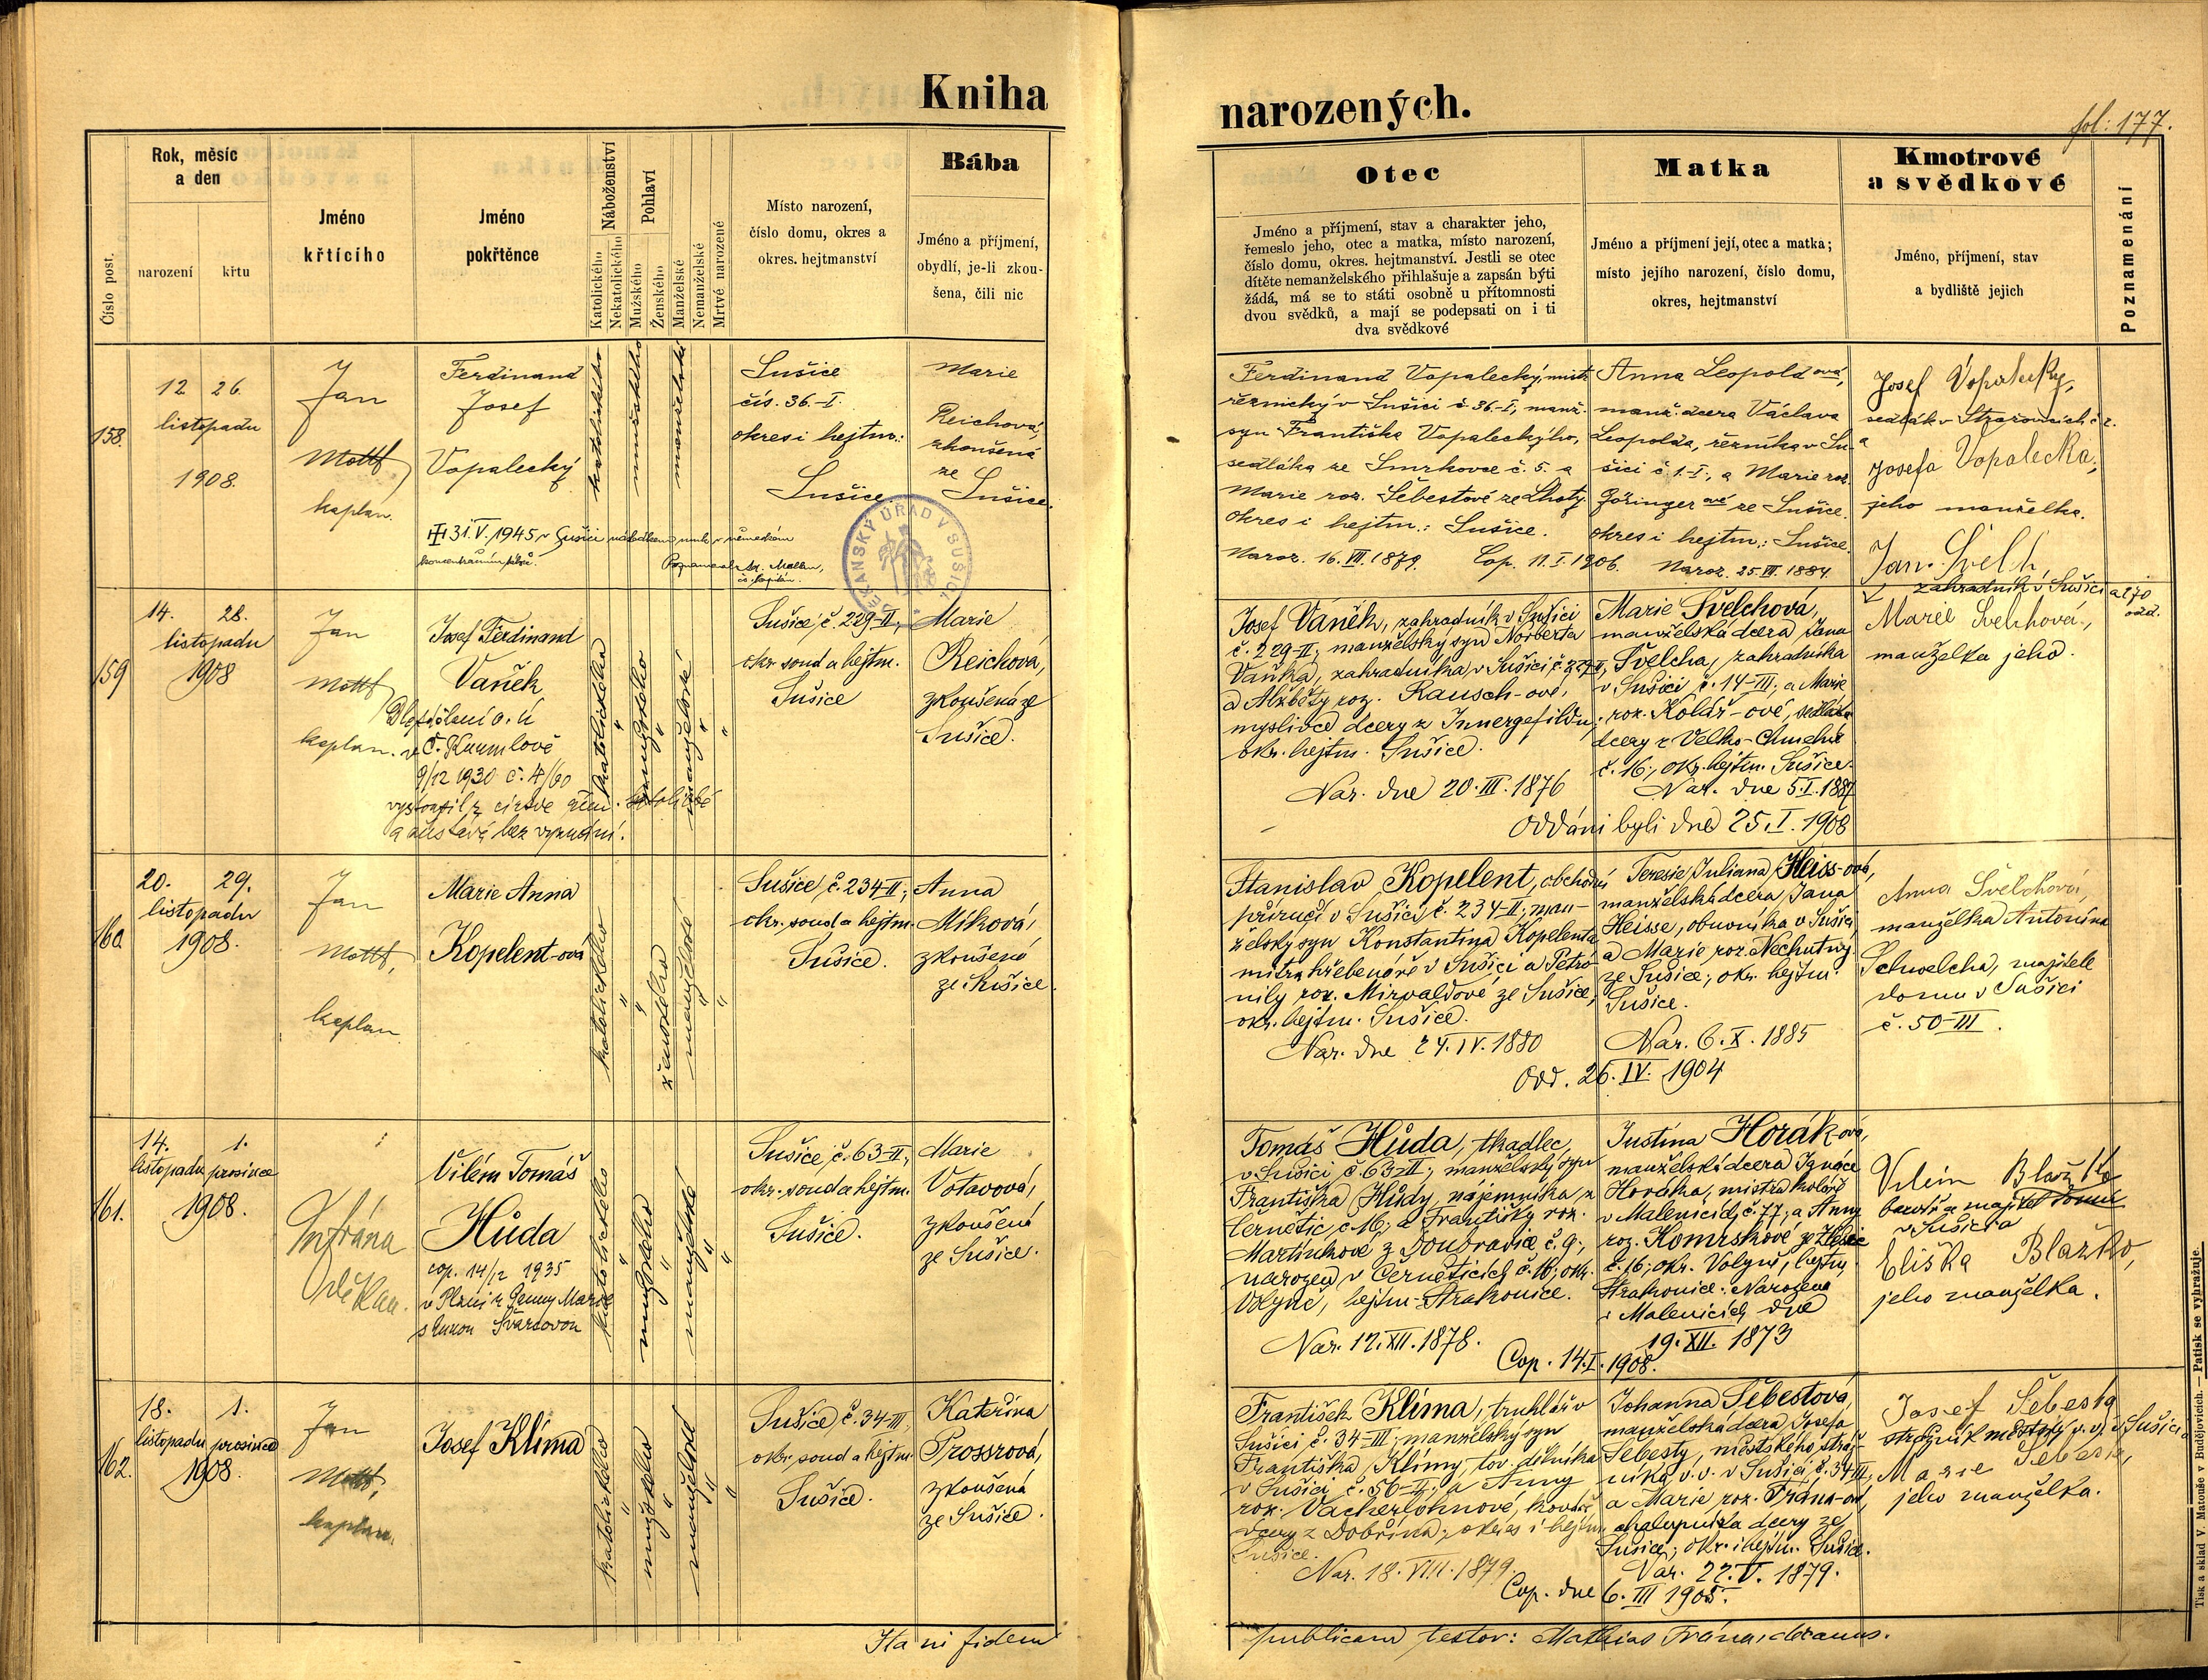 Kniha
narozených.
fol: 177.
Číslo post.
Rok, měsíc
a den
narození
křtu
Jméno
křtícího
Jméno
pokřtěnce
Náboženství
Katolického
Nekatolického
Pohlaví
Mužského
Ženského
Manželské
Nemanželské
Mrtvé narozené
Místo narození,
číslo domu, okres a
okres. hejtmanství
Bába
Jméno a příjmení,
obydlí, je-li zkou-
šena, čili nic
Otec
Jméno a příjmení, stav a charakter jeho,
řemeslo jeho, otec a matka, místo narození,
číslo domu, okres. hejtmanství. Jestli se otec
dítěte nemanželského přihlašuje a zapsán býti
žádá, má se to státi osobně u přítomnosti
dvou svědků, a mají se podepsati on i ti
dva svědkové
Matka
Jméno a příjmení její, otec a matka;
místo jejího narození, číslo domu,
okres, hejtmanství
Kmotrové
a svědkové
Jméno, příjmení, stav
a bydliště jejich
Poznamenání
158.
12 26.
listopadu
1908.
Jan
Mottl,
kaplan.
Ferdinand
Josef
Vopalecký
31. V. 1945 v Sušici následkem muk v německém
koncentračním
katolického
mužského
manželské
Sušice
čís. 36.-I.
okres i hejtm.:
Sušice.
Marie
Reichová,
zkoušená
ze
Sušice.
DĚKANSKÝ ÚŘAD V SUŠICI
Ferdinand Vopalecký, mistr
řeznický v Sušici č. 36-I, manž.
syn Františka Vopaleckýho,
sedláka ze Smrkovce č. 5. a
Marie roz. Šebestové ze Lhoty
okres i hejtm.: Sušice.
Naroz. 16. VIII. 1879. Cop. 11. I. 1906.
Anna Leopoldová,
manž. dcera Václava
Leopolda, řezníka v Su-
šici č. 1-I., a Marie roz.
ze Sušice.
okres i hejtm.: Sušice.
Naroz. 25. VII. 1884.
Josef Vopalecký,
sedlák v
a
Josefa Vopalecká,
jeho manželka.
159
14. 28.
listopadu
1908
Jan
Mottl,
kaplan.
Josef Ferdinand
Vaněk
Dle sdělení o. ú
v Č. Krumlově
9/12 1930 č. 4/60
vystoupil z církve řím. katolické
a zůstává bez vyznání.
katolického
mužského
manželské
Sušice, č. 229-II,
okr. soud a hejtm.
Sušice
Marie
Reichová,
zkoušená ze
Sušice.
Josef Vaněk, zahradník v Sušici
č. 229-II; manželský syn Norberta
Vaňka, zahradníka v Sušici č. 229-II,
a Alžběty roz. Rausch-ové,
myslivce dcery z Innergefildu;
okr. hejtm. Sušice.
Nar. dne 20. III. 1876
Marie Švelchová,
manželská dcera Jana
Švelcha, zahradníka
v Sušici č. 14-III; a Marie
roz. Kolář-ové, sedláka
dcery z Velko-Chmelné
č. 16; okr. hejtm. Sušice.
Nar. dne 5. I. 1887
Oddáni byli dne 25. I. 1908
Jan Švelch,
zahradník v Sušici a
Marie Švelchová,
manželka jeho.
160
20. 29.
listopadu
1908.
Jan
Mottl,
kaplan
Marie Anna
Kopelent-ová
katolického
ženského
manželské
Sušice, č. 234-II;
okr. soud a hejtm.
Sušice.
Anna
Míková,
zkoušená
ze Sušice.
Stanislav Kopelent, obchodní
příručí v Sušici č. 234-II; man-
želský syn Konstantina Kopelenta
mistra hřebenáře v Sušici a Petro-
nily roz. Mirvaldové ze Sušice,
okr. hejtm. Sušice.
Nar. dne 24. IV. 1880
Teresie Juliana Heiss-ová,
manželská dcera Jana
Heisse, obuvníka v Sušici
a Marie roz. Nechutný
ze Sušice; okr. hejtm.
Sušice.
Nar. 6. X. 1885
Odd. 26. IV. 1904
Anna Švelchová,
manželka Antonína
Schwelcha, majitele
domu v Sušici
č. 50-III.
161.
14. 1.
listopadu prosince
1908.
Mt. Frána
Děkan.
Vilém Tomáš
Hůda
cop. 14/12 1935
v Plzni
s Švarcovou
katolického
mužského
manželské
Sušice, č. 63-II;
okr. soud a hejtm.
Sušice.
Marie
Votavová,
zkoušená
ze Sušice.
Tomáš Hůda, tkadlec
v Sušici č. 63-II; manželský syn
Františka Hůdy, nájemníka z
Černětic, č. 16; a Františky roz.
Martínkové z Doubravice č. 9;
narozen v Černěticích č. 16; okr.
Volyně, hejtm. Strakonice.
Nar. 12. XII. 1878.
Justina Horák-ová,
manželská dcera Ignáce
Horáka, mistra koláře
v Malenicích č. 77; a Anny
roz. Komrskové ze
č. 16; okr. Volyně, hejtm.
Strakonice. Narozena
v Malenicích dne
19. XII. 1873
Cop. 14. I. 1908.
Vilém Blažko
barvíř a majitel domu
v Sušici a
Eliška Blažko,
jeho manželka.
162.
18. 1.
listopadu prosince
1908.
Jan
Mottl,
kaplan.
Josef Klíma
katolického
mužského
manželské
Sušice, č. 34-III,
okr. soud a hejtm.
Sušice.
Kateřina
Prossrová,
zkoušená
ze Sušice.
František Klíma, truhlář v
Sušici č. 34-III; manželský syn
Františka Klímy, tov. dělníka
v Sušici č. 56-II; a Anny
roz. Vacherlohnové, kováře
dcery z Dobřína; okres i hejtm.
Sušice.
Nar. 18. VIII. 1879.
Johanna Šebestová,
manželská dcera Josefa
Šebesty, městského stráž-
níka v. v. v Sušici č. 34-III;
a Marie roz. Frána-ové,
chalupníka dcery ze
Sušice; okr. i hejtm. Sušice.
Nar. 22. V. 1879.
Cop. dne 6. III 1905.
Josef Šebesta
strážník městský v. v. v Sušici
Marie Šebesta,
jeho manželka.
Ita in fidem
publicam testor: Mathias Frána, decanus.
Tisk a sklad V. Matouše v Budějovicích. — Patisk se vyhražuje.